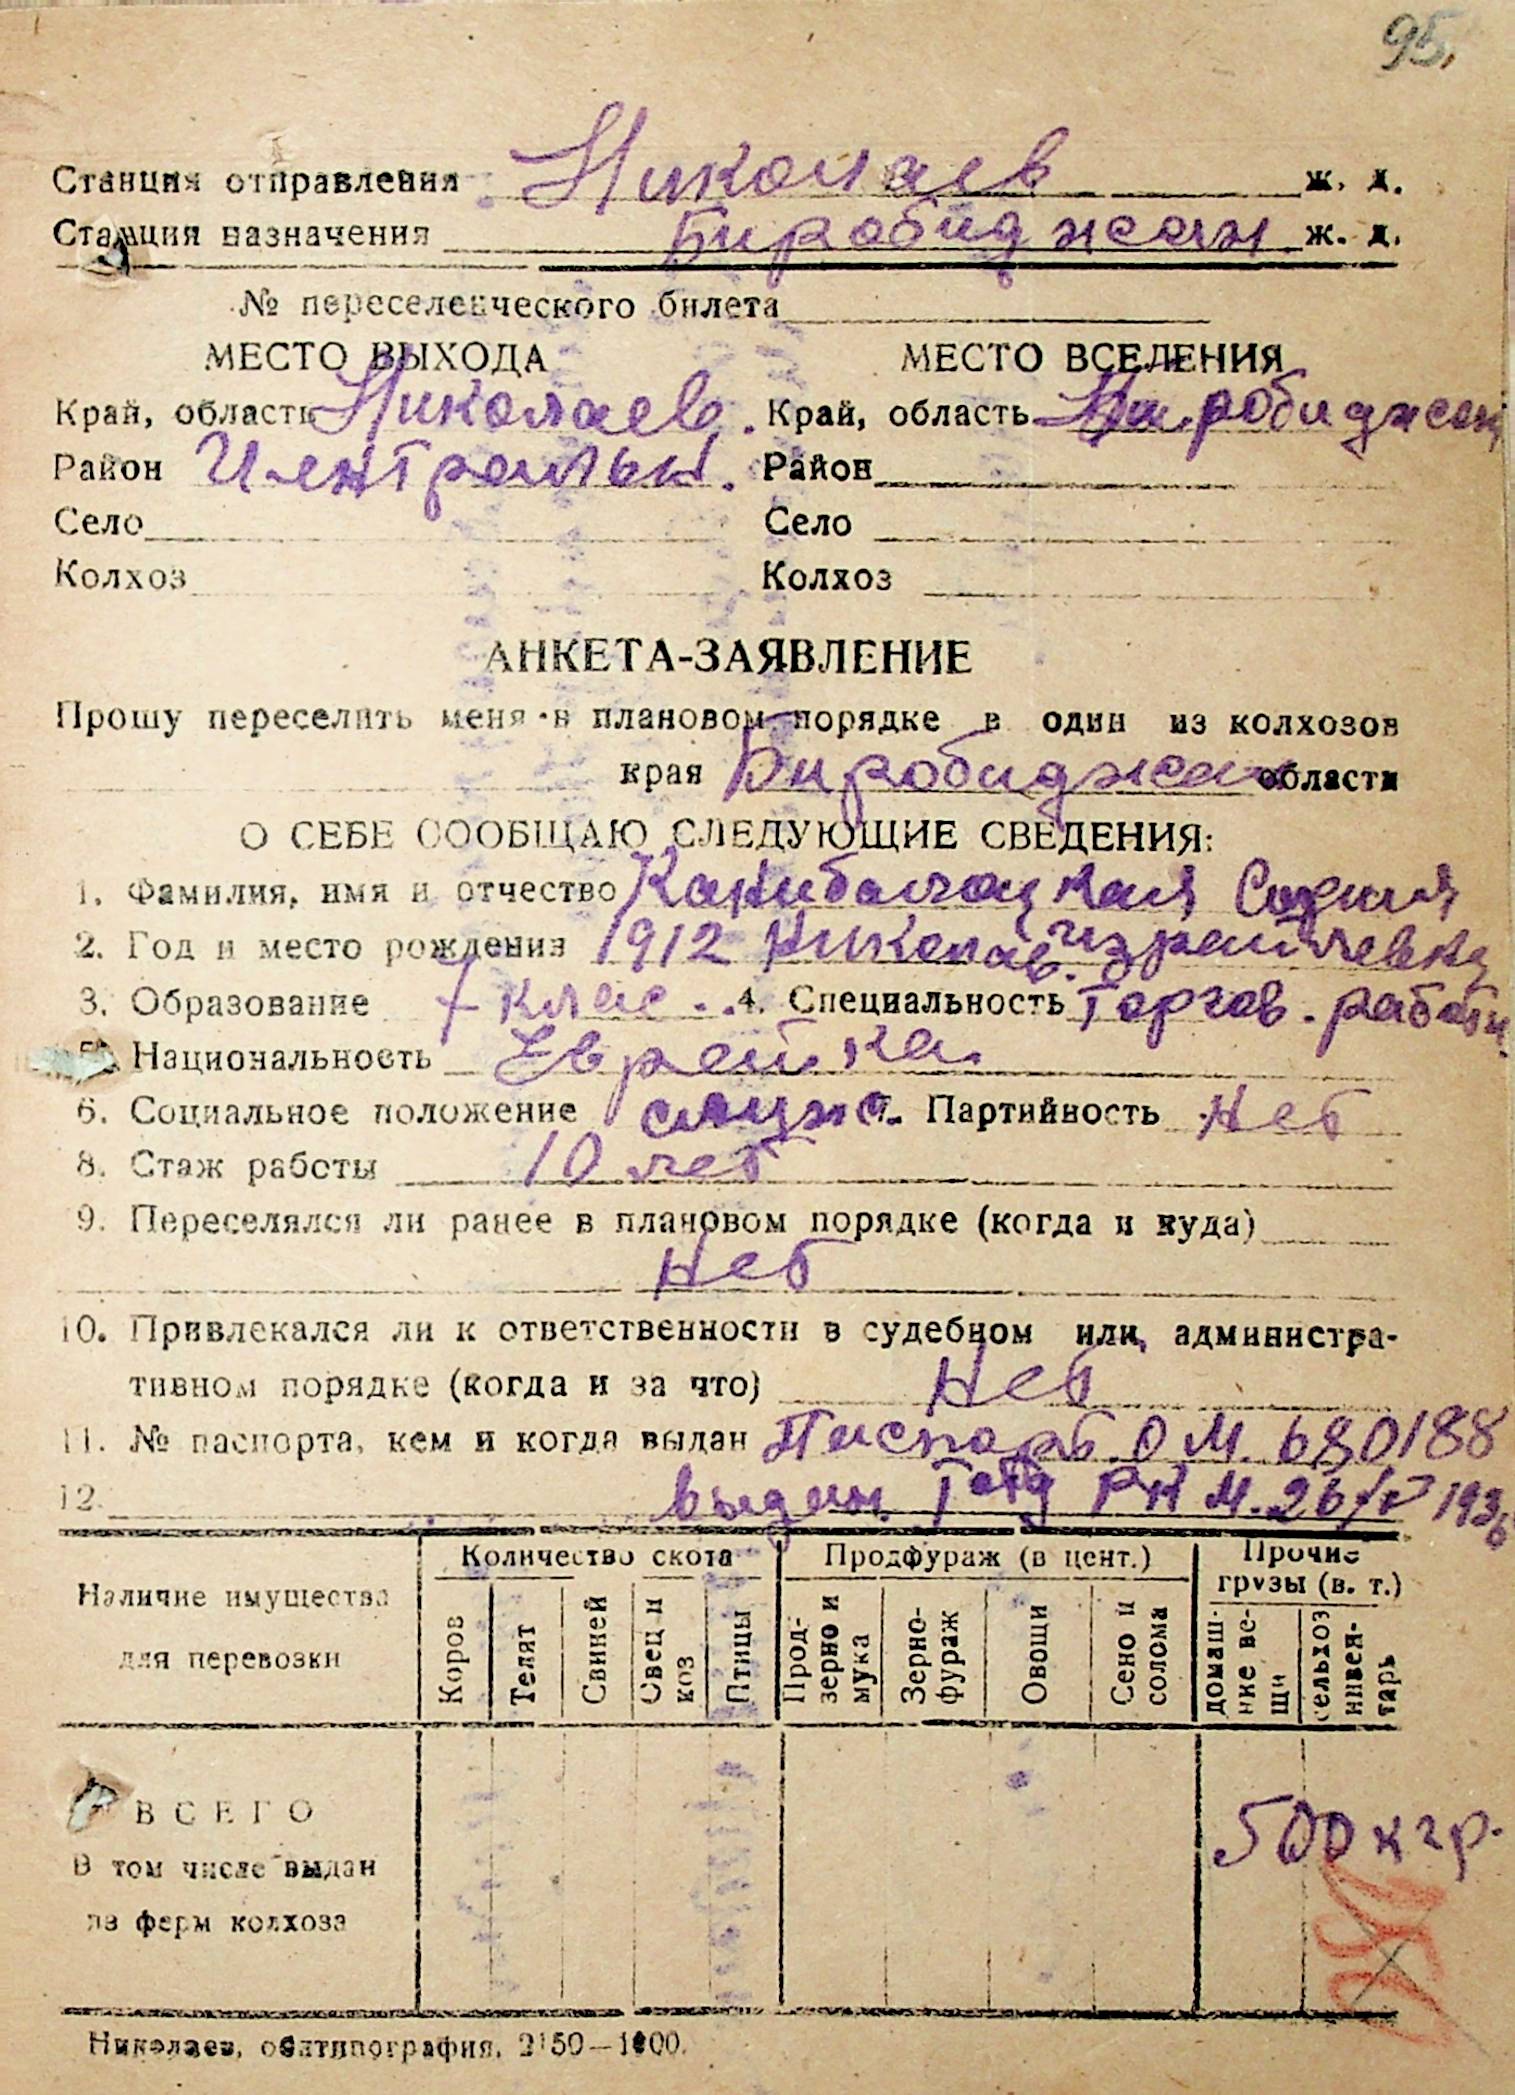 95.
Станция отправления Николаев ж. д.
Станция назначения Биробиджан ж. д.
№ переселенческого билета
МЕСТО ВЫХОДА МЕСТО ВСЕЛЕНИЯ
Край, область Николаев. Край, область Биробиджан
Район Централън. Район
Село Село
Колхоз Колхоз
АНКЕТА-ЗАЯВЛЕНИЕ
Прошу переселить меня в плановом порядке в один из колхозов
края Биробиджан области
О СЕБЕ СООБЩАЮ СЛЕДУЮЩИЕ СВЕДЕНИЯ:
1. Фамилия, имя и отчество Канибалоцкая София
Израйлевна
2. Год и место рождения 1912 Николаев.
3. Образование 7 клас. 4. Специальность Торгов. работн.
5. Национальность Еврейка
6. Социальное положение служ. 7. Партийность Нет
8. Стаж работы 10 лет
9. Переселялся ли ранее в плановом порядке (когда и куда)
Нет
10. Привлекался ли к ответственности в судебном или администра-
тивном порядке (когда и за что) Нет
11. № паспорта, кем и когда выдан Паспорт О М. 680188
12. выдан РК М. 26/IV 1936
Наличие имущества для перевозки
Количество скота Продфураж (в цент.) Прочие грузы (в. т.)
Коров Телят Свиней Овец и коз Птицы Прод-зерно и мука Зерно-фураж Овощи Сено и солома домаш-ние ве-щи сельхоз инвен-тарь
ВСЕГО 500 кгр.
В том числе выдан
из ферм колхоза
Николаев, облтипография. 2150—1000.